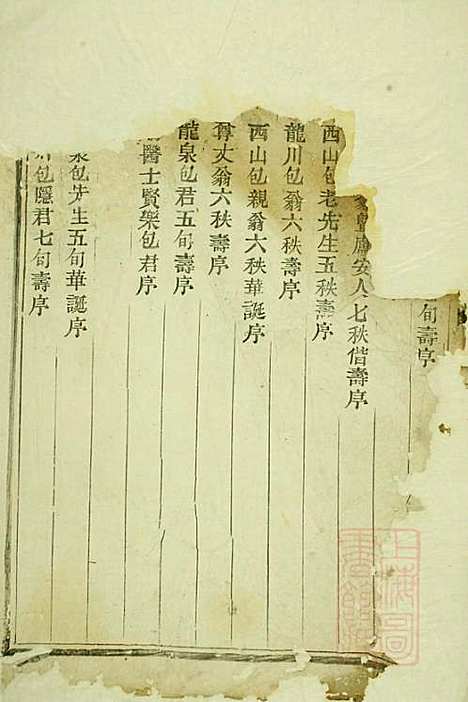 旬壽序
安人七秩偕壽序
西山包老先生五秩壽序
龍川包翁六秩壽序
西山包親翁六秩華誕序
尊丈翁六秩壽序
龍泉包君五旬壽序
醫士賢樂包君序
泉包先生五旬華誕序
川包隱君七旬壽序
上海圖書館藏